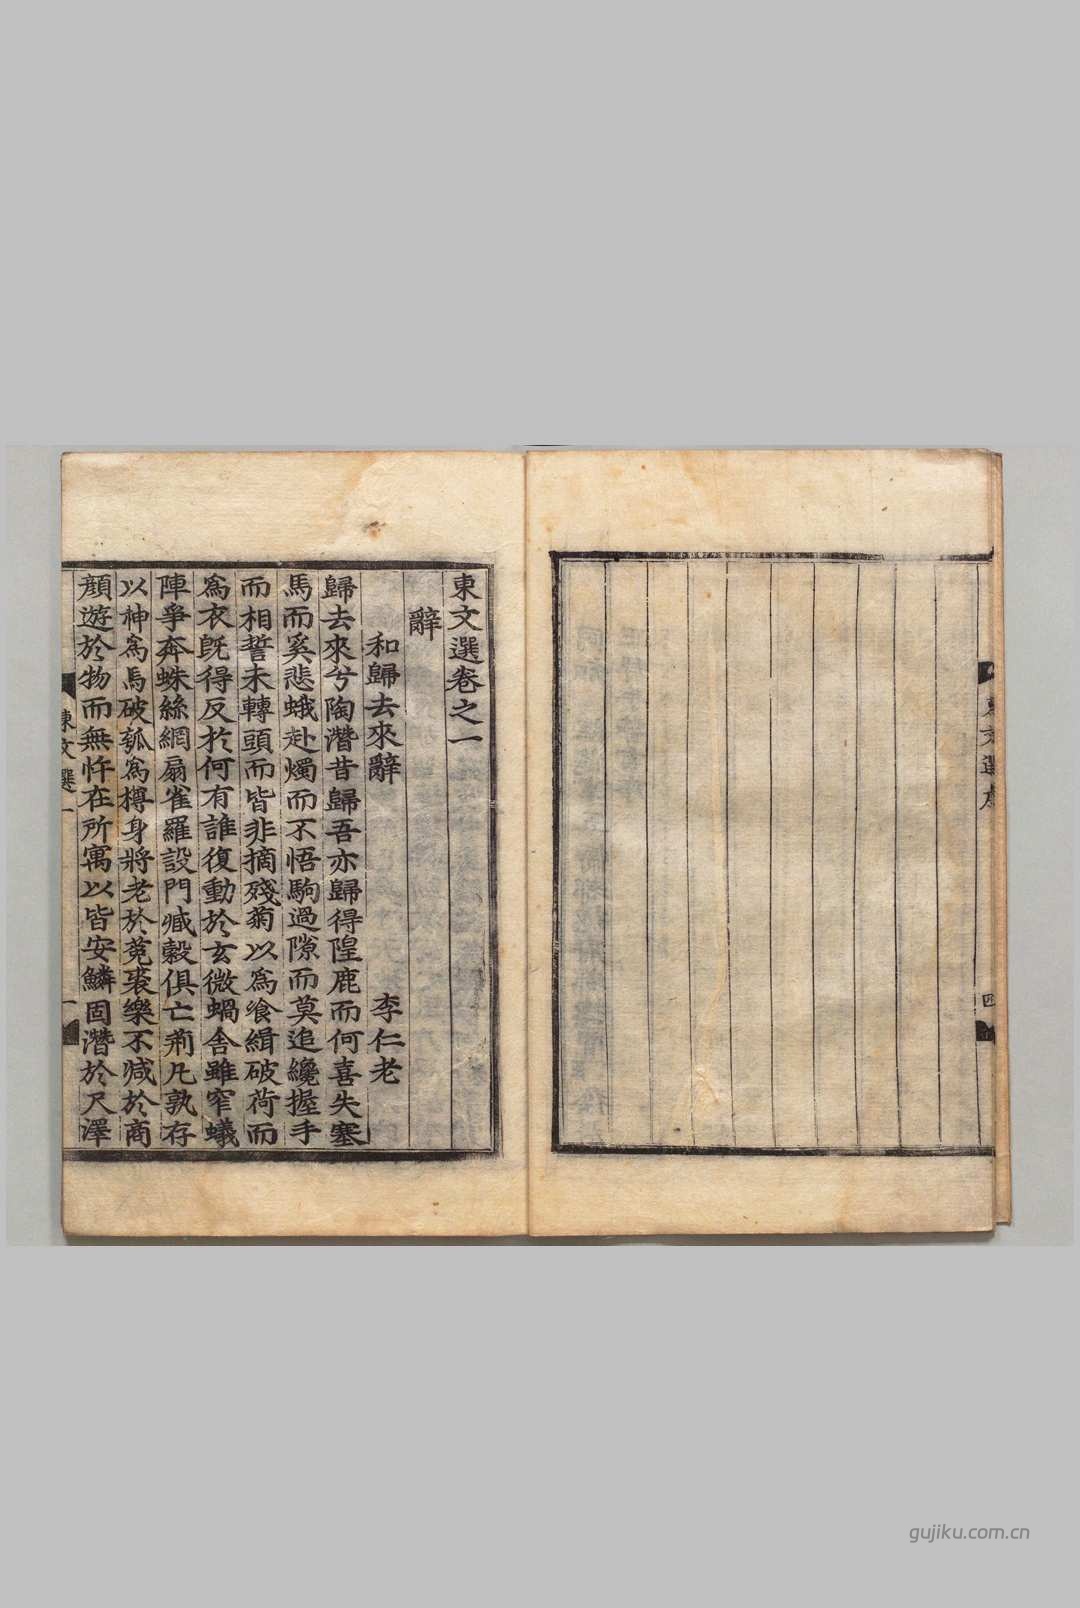 東文選序
四
東文選卷之一
辭
和歸去來辭
李仁老
歸去來兮陶潛昔歸吾亦歸得隍鹿而何喜失塞
馬而奚悲蛾赴燭而不悟駒過隙而莫追纔握手
而相誓未轉頭而皆非摘殘菊以爲飡緝破荷而
爲衣旣得反於何有誰復動於玄微蝸舍雖窄蟻
陣爭奔蛛絲網扇雀羅設門臧穀俱亡荊凡孰存
以神爲馬破瓠爲樽身將老於菟裘樂不減於商
顔遊於物而無忤在所寓以皆安鱗固潛於尺澤
東文選一
一
gujiku.com.cn